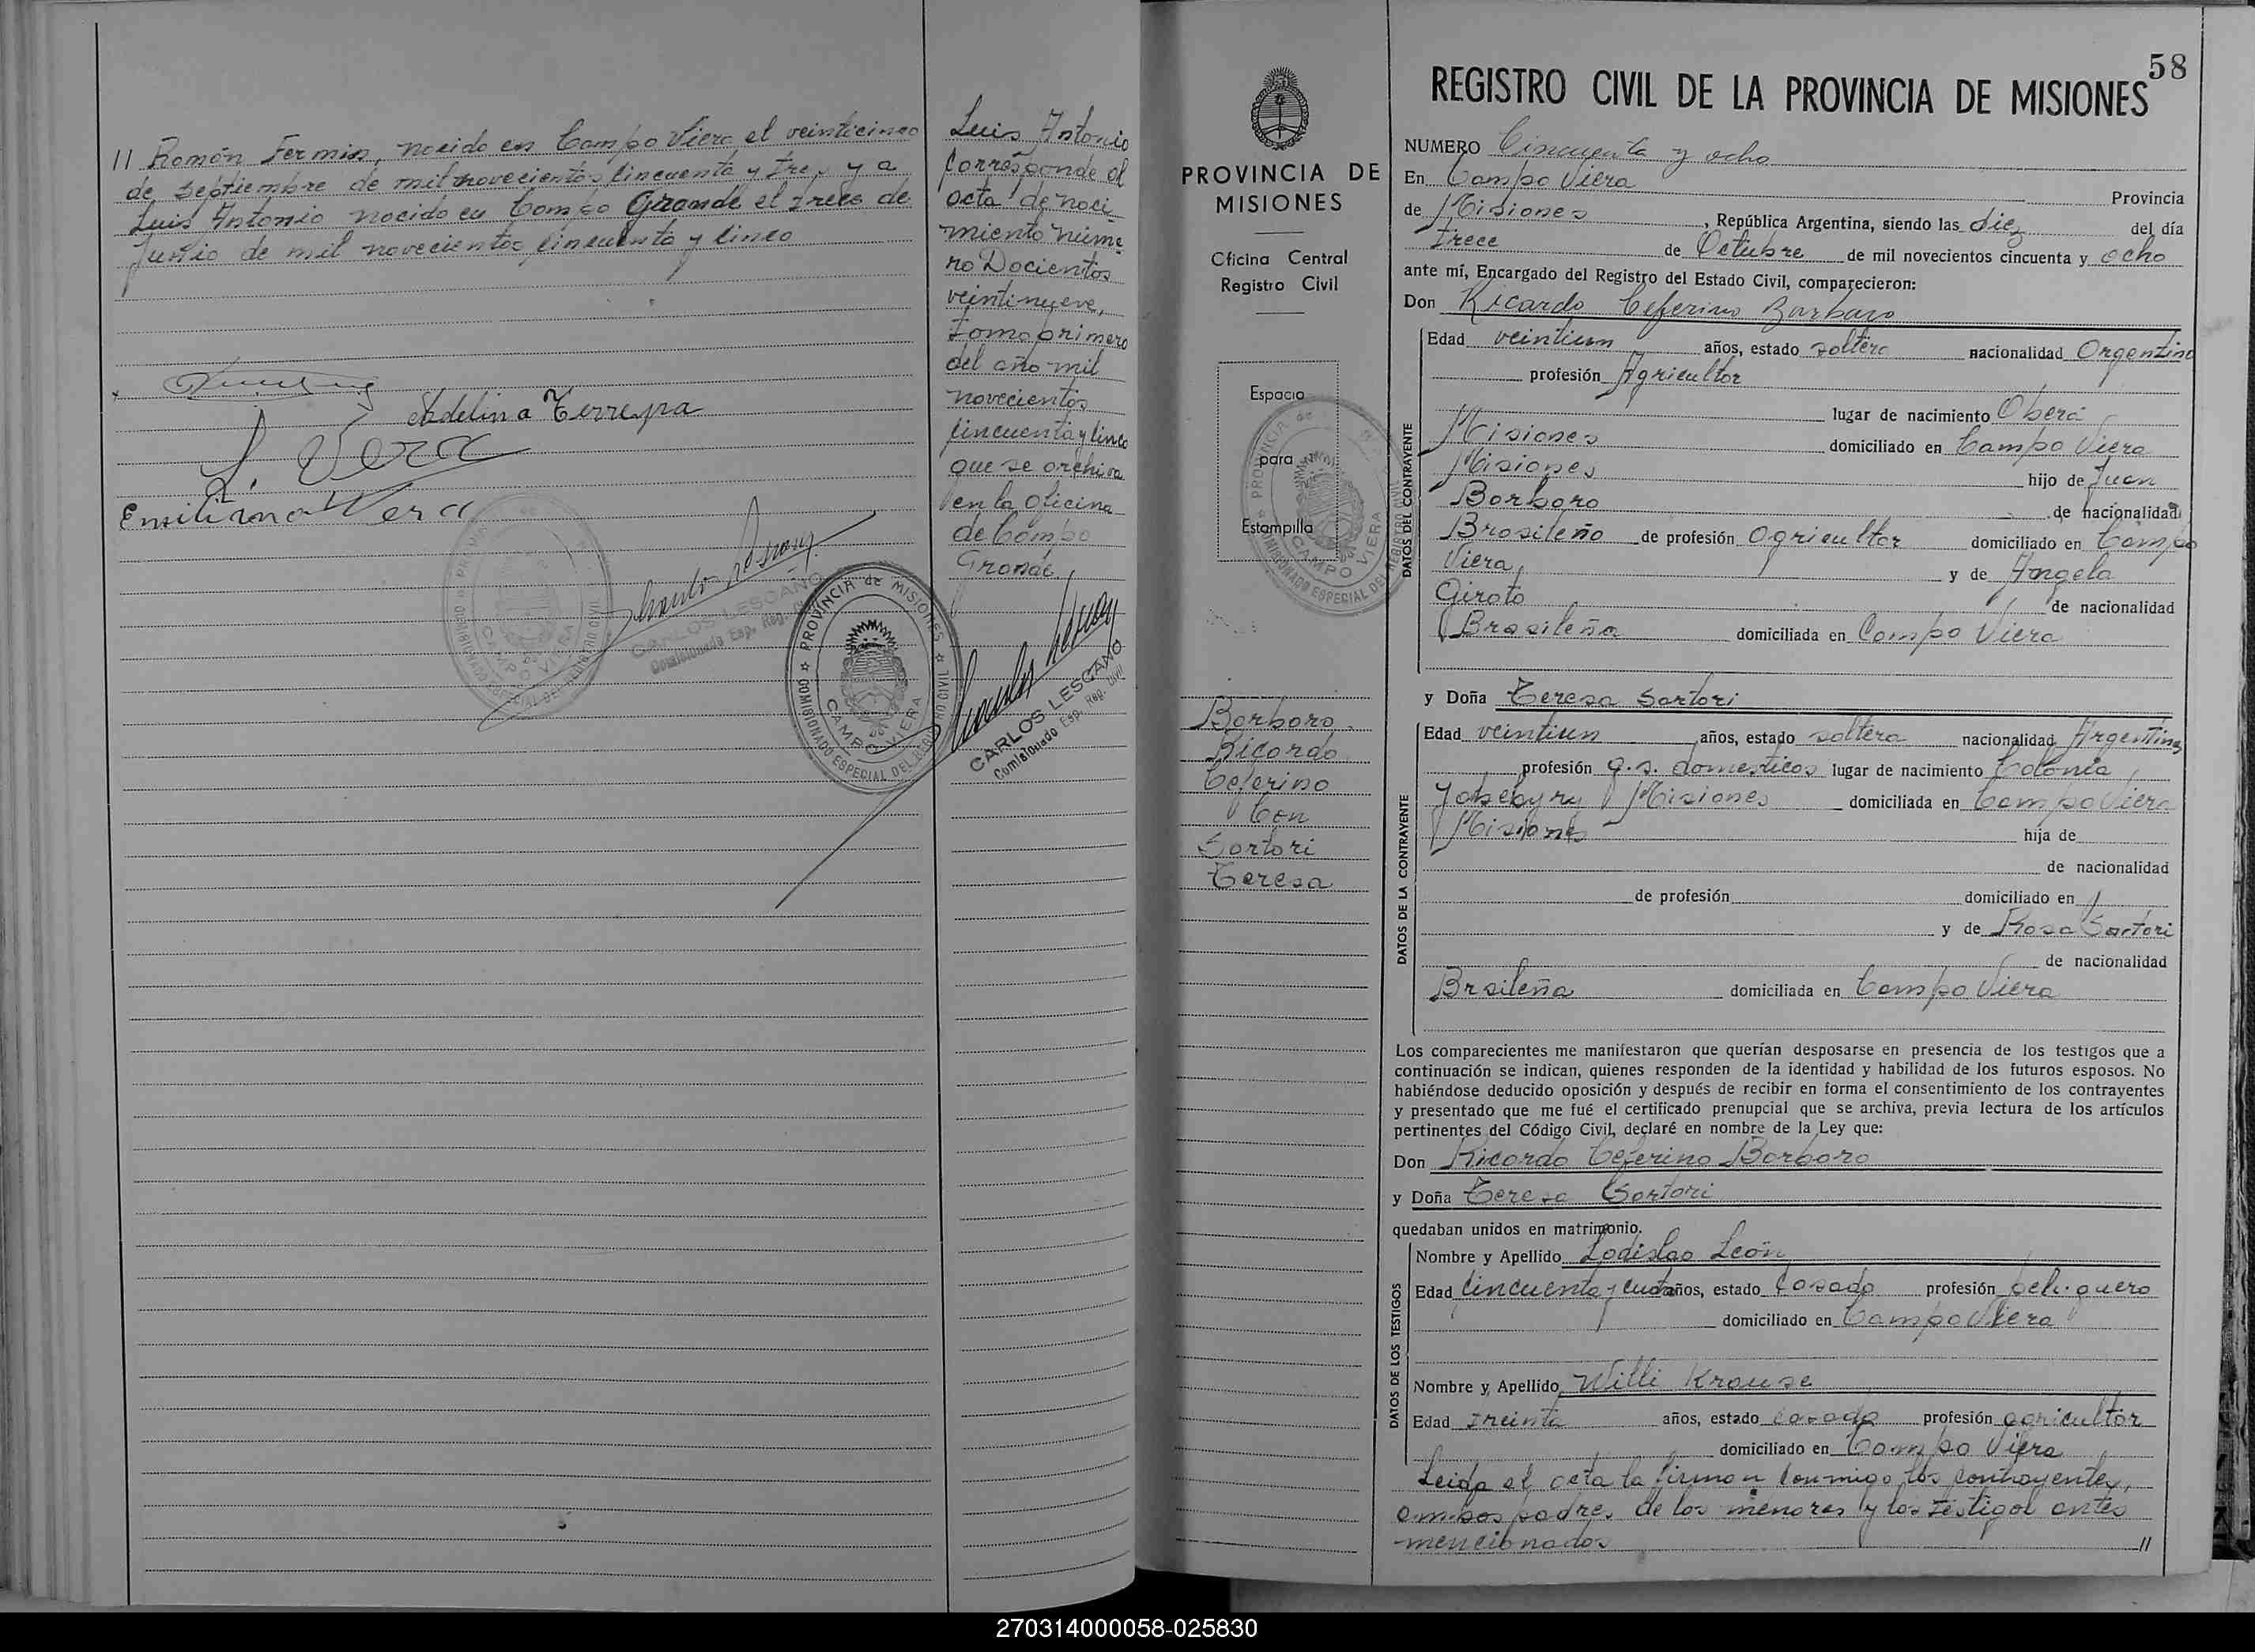 11 Román Fermin, nacido en Campo Viera el veinticinco
de septiembre de mil novecientos cincuenta y tres y a
Luis Antonio nacido en Campo Grande el trece de
Junio de mil novecientos cincuenta y cinco
Adelina Ferreyra
Emiliano Vera
PROVINCIA de MISIONES
COMISIONADO ESPECIAL DEL REGISTRO CIVIL
CAMPO VIERA
CARLOS LESCANO
Comisionado Esp. Reg. Civil
Luis Antonio
Corresponde al
acta de naci
miento núme-
ro Docientos
veintinueve,
tomo primero
del año mil
novecientos
cincuenta y cinco
que se archiva
en la oficina
de Campo
Grande.
PROVINCIA de MISIONES
COMISIONADO ESPECIAL DEL REGISTRO CIVIL
CAMPO VIERA
CARLOS LESCANO
Comisionado Esp. Reg. Civil
PROVINCIA DE
MISIONES
Oficina Central
Registro Civil
Espacio
para
Estampilla
Barbaro
Ricardo
Ceferino
Con
Sartori
Teresa
58
REGISTRO CIVIL DE LA PROVINCIA DE MISIONES
NUMERO Cincuenta y ocho
En Campo Viera Provincia
de Misiones, República Argentina, siendo las diez del día
trece de Octubre de mil novecientos cincuenta y ocho
ante mí, Encargado del Registro del Estado Civil, comparecieron:
Don Ricardo Ceferino Barbaro
DATOS DEL CONTRAYENTE
Edad veintiun años, estado soltero nacionalidad Argentino
profesión Agricultor
lugar de nacimiento Oberá
Misiones domiciliado en Campo Viera
Misiones hijo de Juan
Barbaro de nacionalidad
Brasileño de profesión agricultor domiciliado en Campo
Viera, y de Angela
Giroto de nacionalidad
Brasileña domiciliada en Campo Viera
y Doña Teresa Sartori
DATOS DE LA CONTRAYENTE
Edad veintiun años, estado soltera nacionalidad Argentina
profesión q.s. domesticos lugar de nacimiento Colonia
Yabebyry Misiones domiciliada en Campo Viera
Misiones hija de
de nacionalidad
de profesión domiciliado en
y de Rosa Sartori
de nacionalidad
Brsileña domiciliada en Campo Viera
Los comparecientes me manifestaron que querían desposarse en presencia de los testigos que a
continuación se indican, quienes responden de la identidad y habilidad de los futuros esposos. No
habiéndose deducido oposición y después de recibir en forma el consentimiento de los contrayentes
y presentado que me fué el certificado prenupcial que se archiva, previa lectura de los artículos
pertinentes del Código Civil, declaré en nombre de la Ley que:
Don Ricardo Ceferino Barbaro
y Doña Teresa Sartori
quedaban unidos en matrimonio.
DATOS DE LOS TESTIGOS
Nombre y Apellido Ladislao León
Edad Cincuenta y cuatro años, estado Casado profesión peluquero
domiciliado en Campo Viera
Nombre y Apellido Willi Krause
Edad treinta años, estado casado profesión agricultor
domiciliado en Campo Viera
Leida el acta la firman conmigo los contrayentes,
ambos padres de los menores y los testigos antes
mencionados 11
270314000058-025830